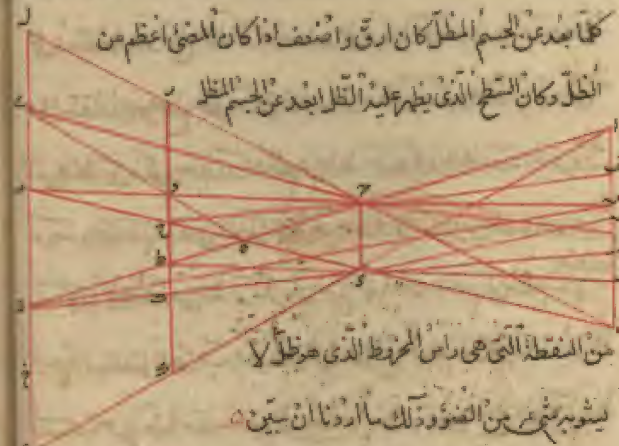 كلما بعد عن الجسم المظل كان ارق واضعف اذا كان المضئ اعظم من
المظل وكان السطح الذى يظهر عليه الظل ابعد عن الجسم المظل
من النقطة التى هى راس المخروط الذى هو ظل لا
يشوبه شىء من الضوء وذلك ما اردنا ان نبين